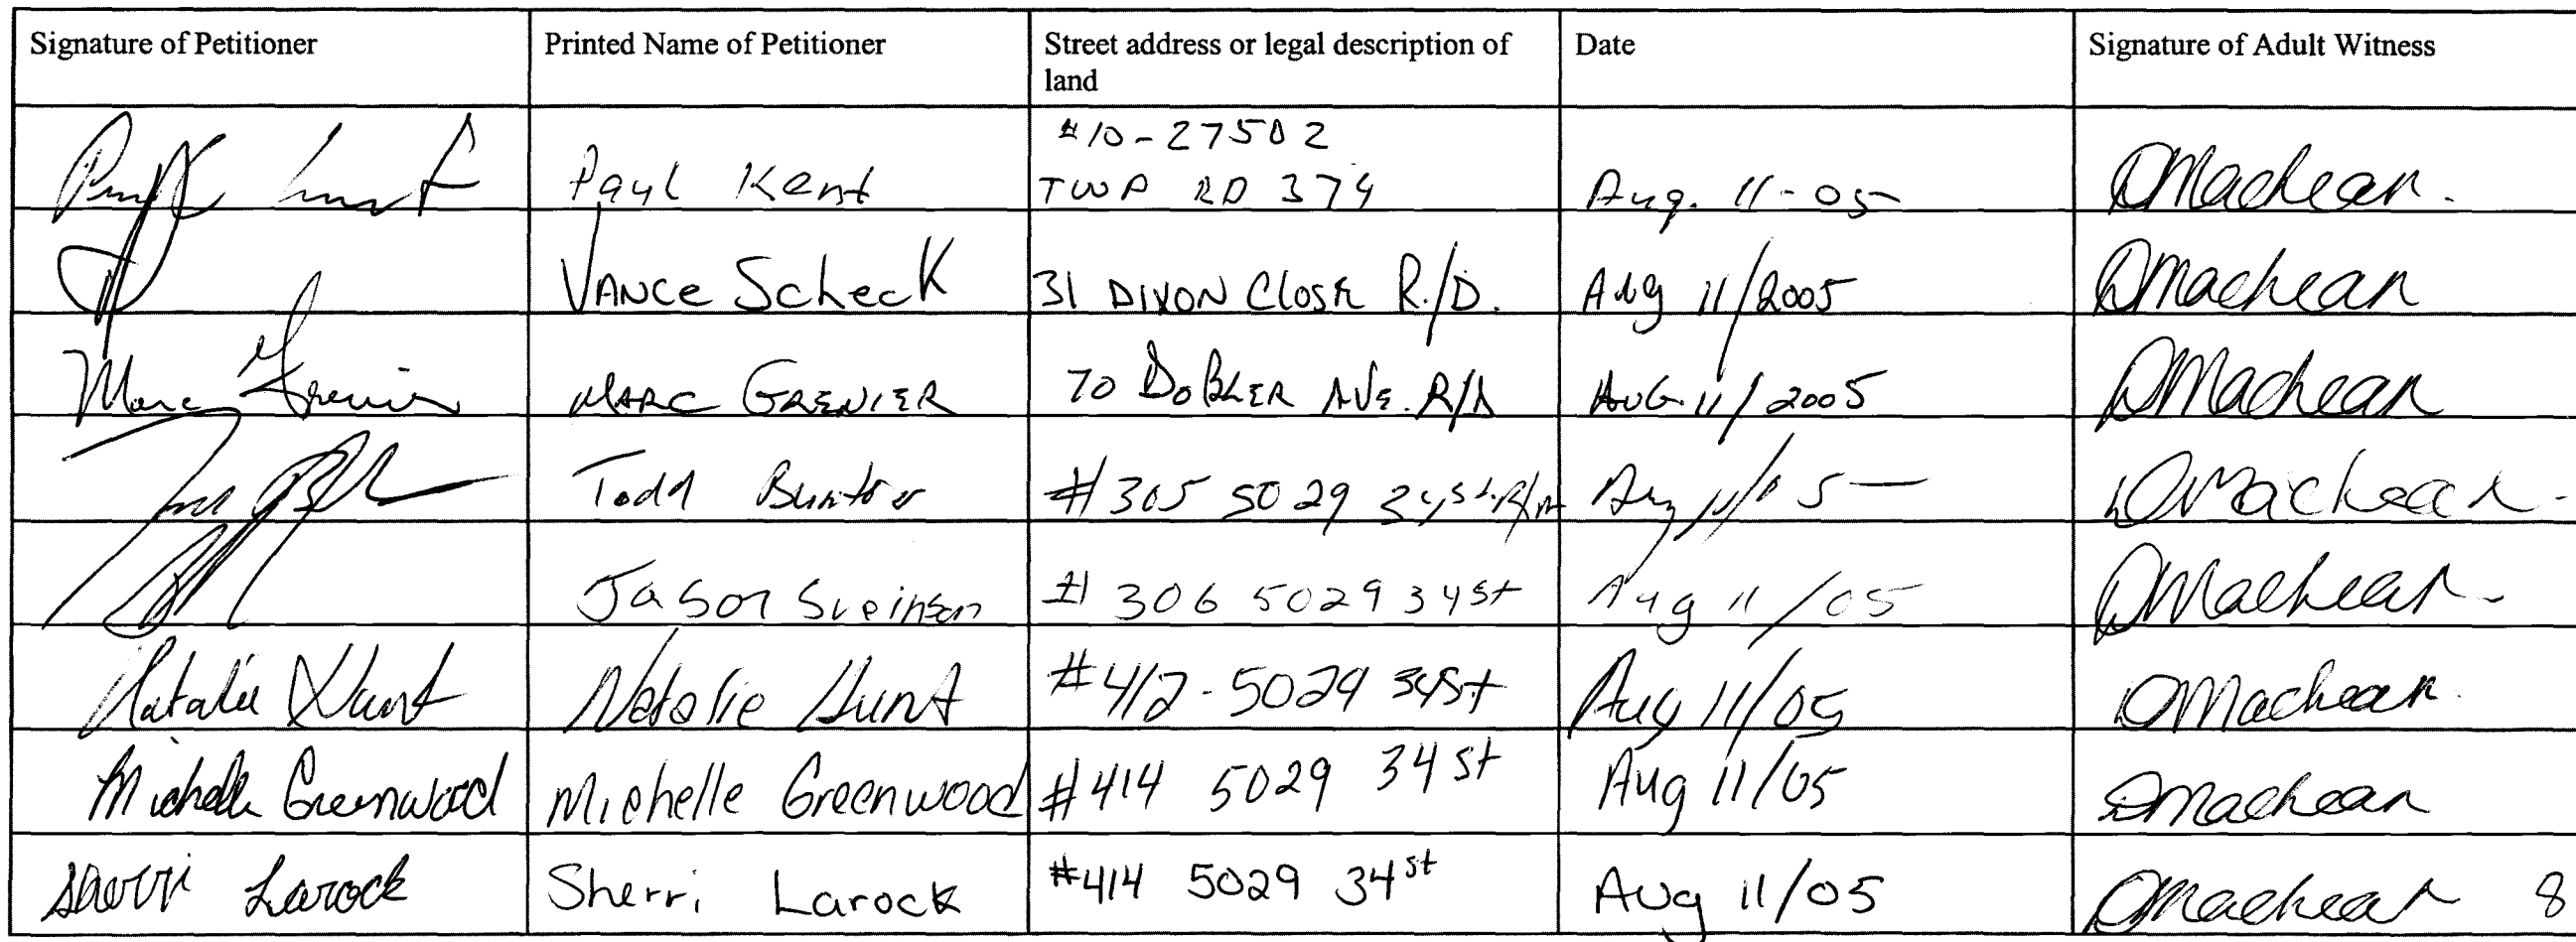 Signature of Petitioner Printed Name of Petitioner Street address or legal description of Date Signature of Adult Witness
land
#10-27502
Paul Kent TWP RD 374 Aug. 11-05 DMachean.
VANCE ScheCK 31 DIXON Close R./D. Aug 11/2005 DMachean
Marc Grenier MARC GRENIER 70 DoBLER AVE. R/D AUG. 11/2005 DMachean
Todd #305 5029 34st. R/D Aug 11/05 DMachean-
Jason Sveinson #306 5029 34st Aug 11/05 DMachean
Natalie Hunt Natalie Hunt #412-5029 34st Aug 11/05 DMachean.
Michelle Greenwood Michelle Greenwood #414 5029 34 st Aug 11/05 DMachean
Sherri Larock Sherri Larock #414 5029 34st Aug 11/05 DMachean 8